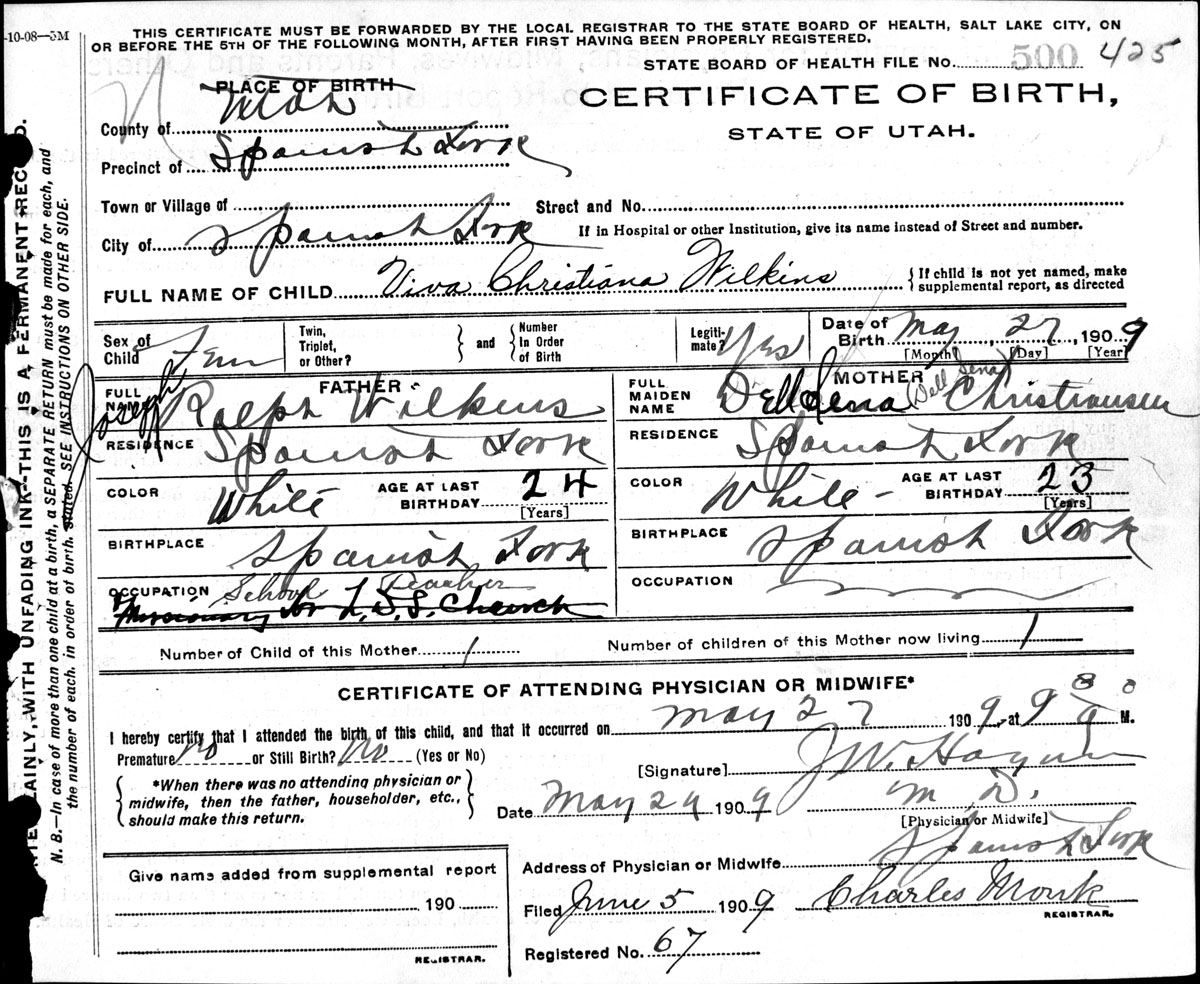 -10-08—5M
THIS CERTIFICATE MUST BE FORWARDED BY THE LOCAL REGISTRAR TO THE STATE BOARD OF HEALTH, SALT LAKE CITY, ON
OR BEFORE THE 5TH OF THE FOLLOWING MONTH, AFTER FIRST HAVING BEEN PROPERLY REGISTERED.
STATE BOARD OF HEALTH FILE No. 500 425
PLACE OF BIRTH
CERTIFICATE OF BIRTH,
STATE OF UTAH.
County of Utah
Precinct of Spanish Fork
Town or Village of Street and No.
City of Spanish Fork If in Hospital or other Institution, give its name instead of Street and number.
FULL NAME OF CHILD Viva Christiana Wilkins { If child is not yet named, make supplemental report, as directed
Sex of Child Fem Twin, Triplet, or Other? } and { Number In Order of Birth Legiti-mate? Yes Date of Birth May 27, 1909
[Month] [Day] [Year]
FATHER
FULL NAME Joseph Ralph Wilkins
RESIDENCE Spanish Fork
COLOR White AGE AT LAST BIRTHDAY 24 [Years]
BIRTHPLACE Spanish Fork
OCCUPATION School Teacher
Missionary for L.D.S. Church
MOTHER
FULL MAIDEN NAME Dell Sena (Dell Sena) Christiansen
RESIDENCE Spanish Fork
COLOR White - AGE AT LAST BIRTHDAY 23 [Years]
BIRTHPLACE Spanish Fork
OCCUPATION
Number of Child of this Mother 1 Number of children of this Mother now living 1
CERTIFICATE OF ATTENDING PHYSICIAN OR MIDWIFE*
I hereby certify that I attended the birth of this child, and that it occurred on May 27 1909, at 9 30 a M.
Premature no or Still Birth? No (Yes or No)
[Signature] J W. Hagan
{ *When there was no attending physician or
midwife, then the father, householder, etc.,
should make this return. }
Date May 29 1909 M D.
[Physician or Midwife]
Address of Physician or Midwife Spanish Fork
Give name added from supplemental report
190
REGISTRAR.
Filed June 5 1909 Charles Monk
REGISTRAR.
Registered No. 67
AINLY, WITH UNFADING INK--THIS IS A PERMANENT REC D.
N. B.—In case of more than one child at a birth, a SEPARATE RETURN must be made for each, and
the number of each, in order of birth, stated. SEE INSTRUCTIONS ON OTHER SIDE.